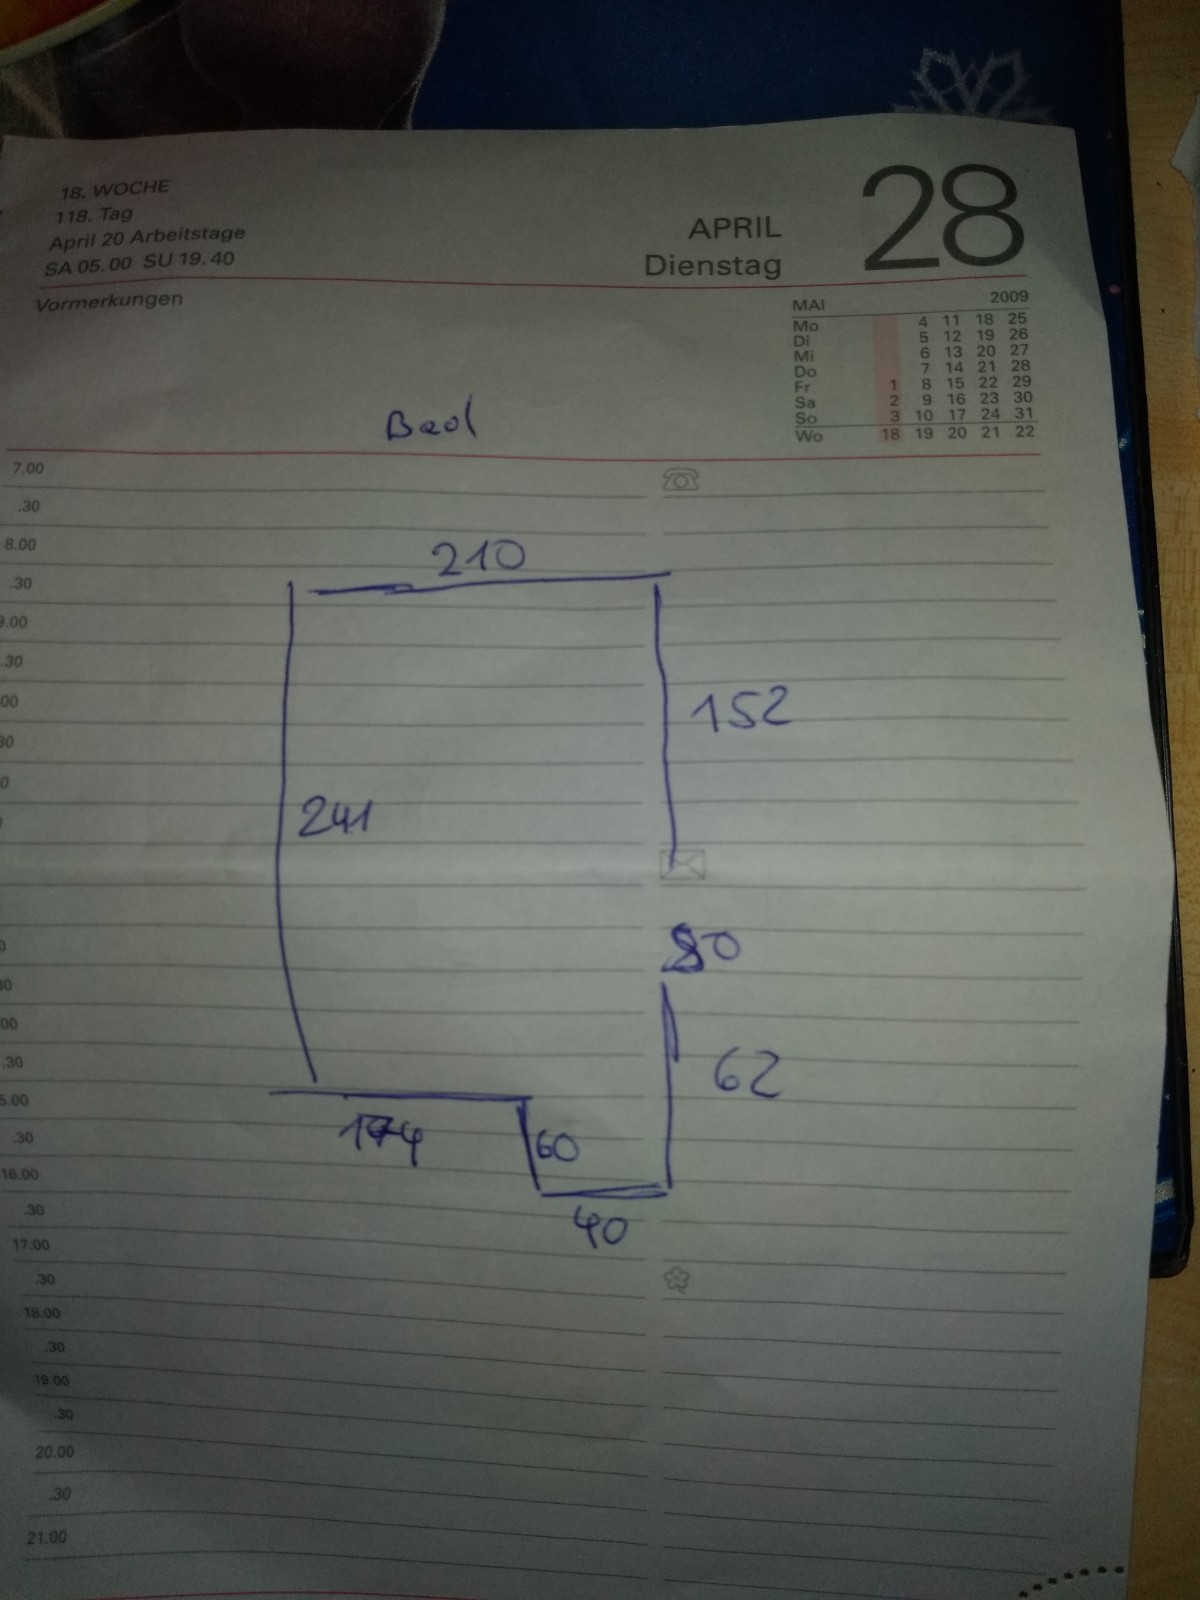 18. WOCHE
118. Tag
April 20 Arbeitstage
SA 05.00 SU 19.40
APRIL
Dienstag
28
Vormerkungen
MAI 2009
Mo 4 11 18 25
Di 5 12 19 26
Mi 6 13 20 27
Do 7 14 21 28
Fr 1 8 15 22 29
Sa 2 9 16 23 30
So 3 10 17 24 31
Wo 18 19 20 21 22
Bad
7.00
.30
8.00
210
.30
9.00
.30
00
152
30
241
80
00
.30
62
5.00
174
.30
60
16.00
.30
40
17.00
.30
18.00
.30
19.00
.30
20.00
.30
21.00